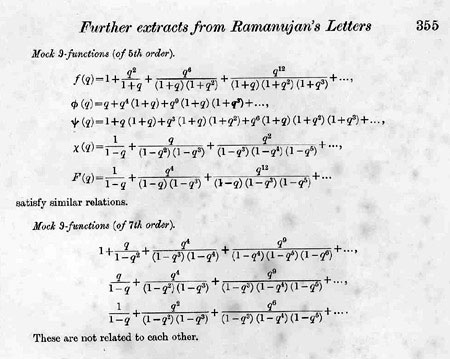 Further extracts from Ramanujan's Letters 355
Mock ϑ-functions (of 5th order).
f(q)=1+q²/(1+q)+q⁶/((1+q)(1+q²))+q¹²/((1+q)(1+q²)(1+q³))+...,
ϕ(q)=q+q⁴(1+q)+q⁹(1+q)(1+q³)+...,
ψ(q)=1+q(1+q)+q³(1+q)(1+q²)+q⁶(1+q)(1+q²)(1+q³)+...,
χ(q)=1/(1-q)+q/((1-q²)(1-q³))+q²/((1-q³)(1-q⁴)(1-q⁵))+...,
F(q)=1/(1-q)+q⁴/((1-q)(1-q³))+q¹²/((1-q)(1-q³)(1-q⁵))+...
satisfy similar relations.
Mock ϑ-functions (of 7th order).
1+q/(1-q²)+q⁴/((1-q³)(1-q⁴))+q⁹/((1-q⁴)(1-q⁵)(1-q⁶))+...,
q/(1-q)+q⁴/((1-q²)(1-q³))+q⁹/((1-q³)(1-q⁴)(1-q⁵))+...,
1/(1-q)+q²/((1-q²)(1-q³))+q⁶/((1-q³)(1-q⁴)(1-q⁵))+....
These are not related to each other.